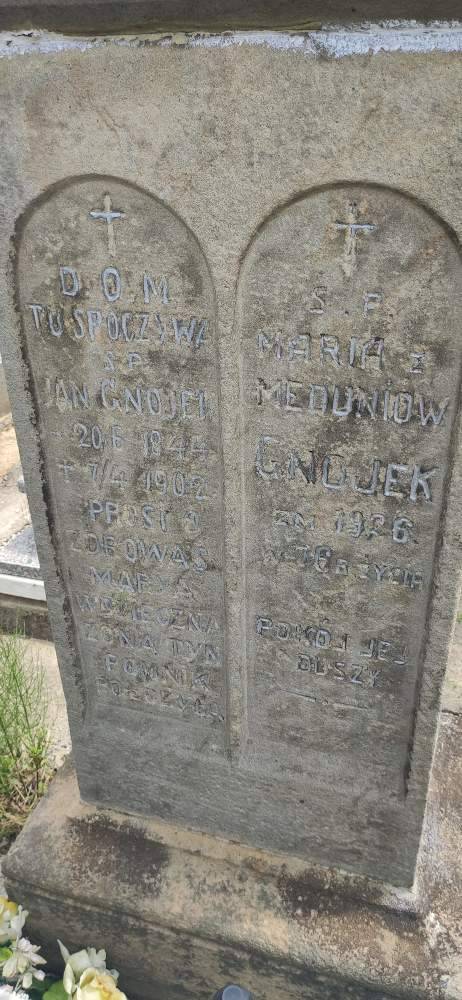 D.O.M.
TU SPOCZYWA
Ś.P.
JAN GNOJEK
20/6 1844
† 7/4 1902
PROSI O
ZDROWAŚ
MARYA
WDZIĘCZNA
ŻONA TYN
POMNIK
Ś.P.
MARIA Z
MEDUNIÓW
GNOJEK
ZM. 1926
POKÓJ JEJ
DUSZY